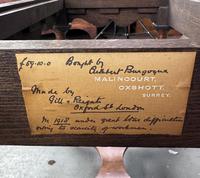 £69.10.0 Bought by
Cuthbert Burgoyne
MALINCOURT,
OXSHOTT,
SURREY.
Made by
Gill & Reigate
Oxford St London
In 1918 under great labor difficulties
owing to scarcity of workmen.